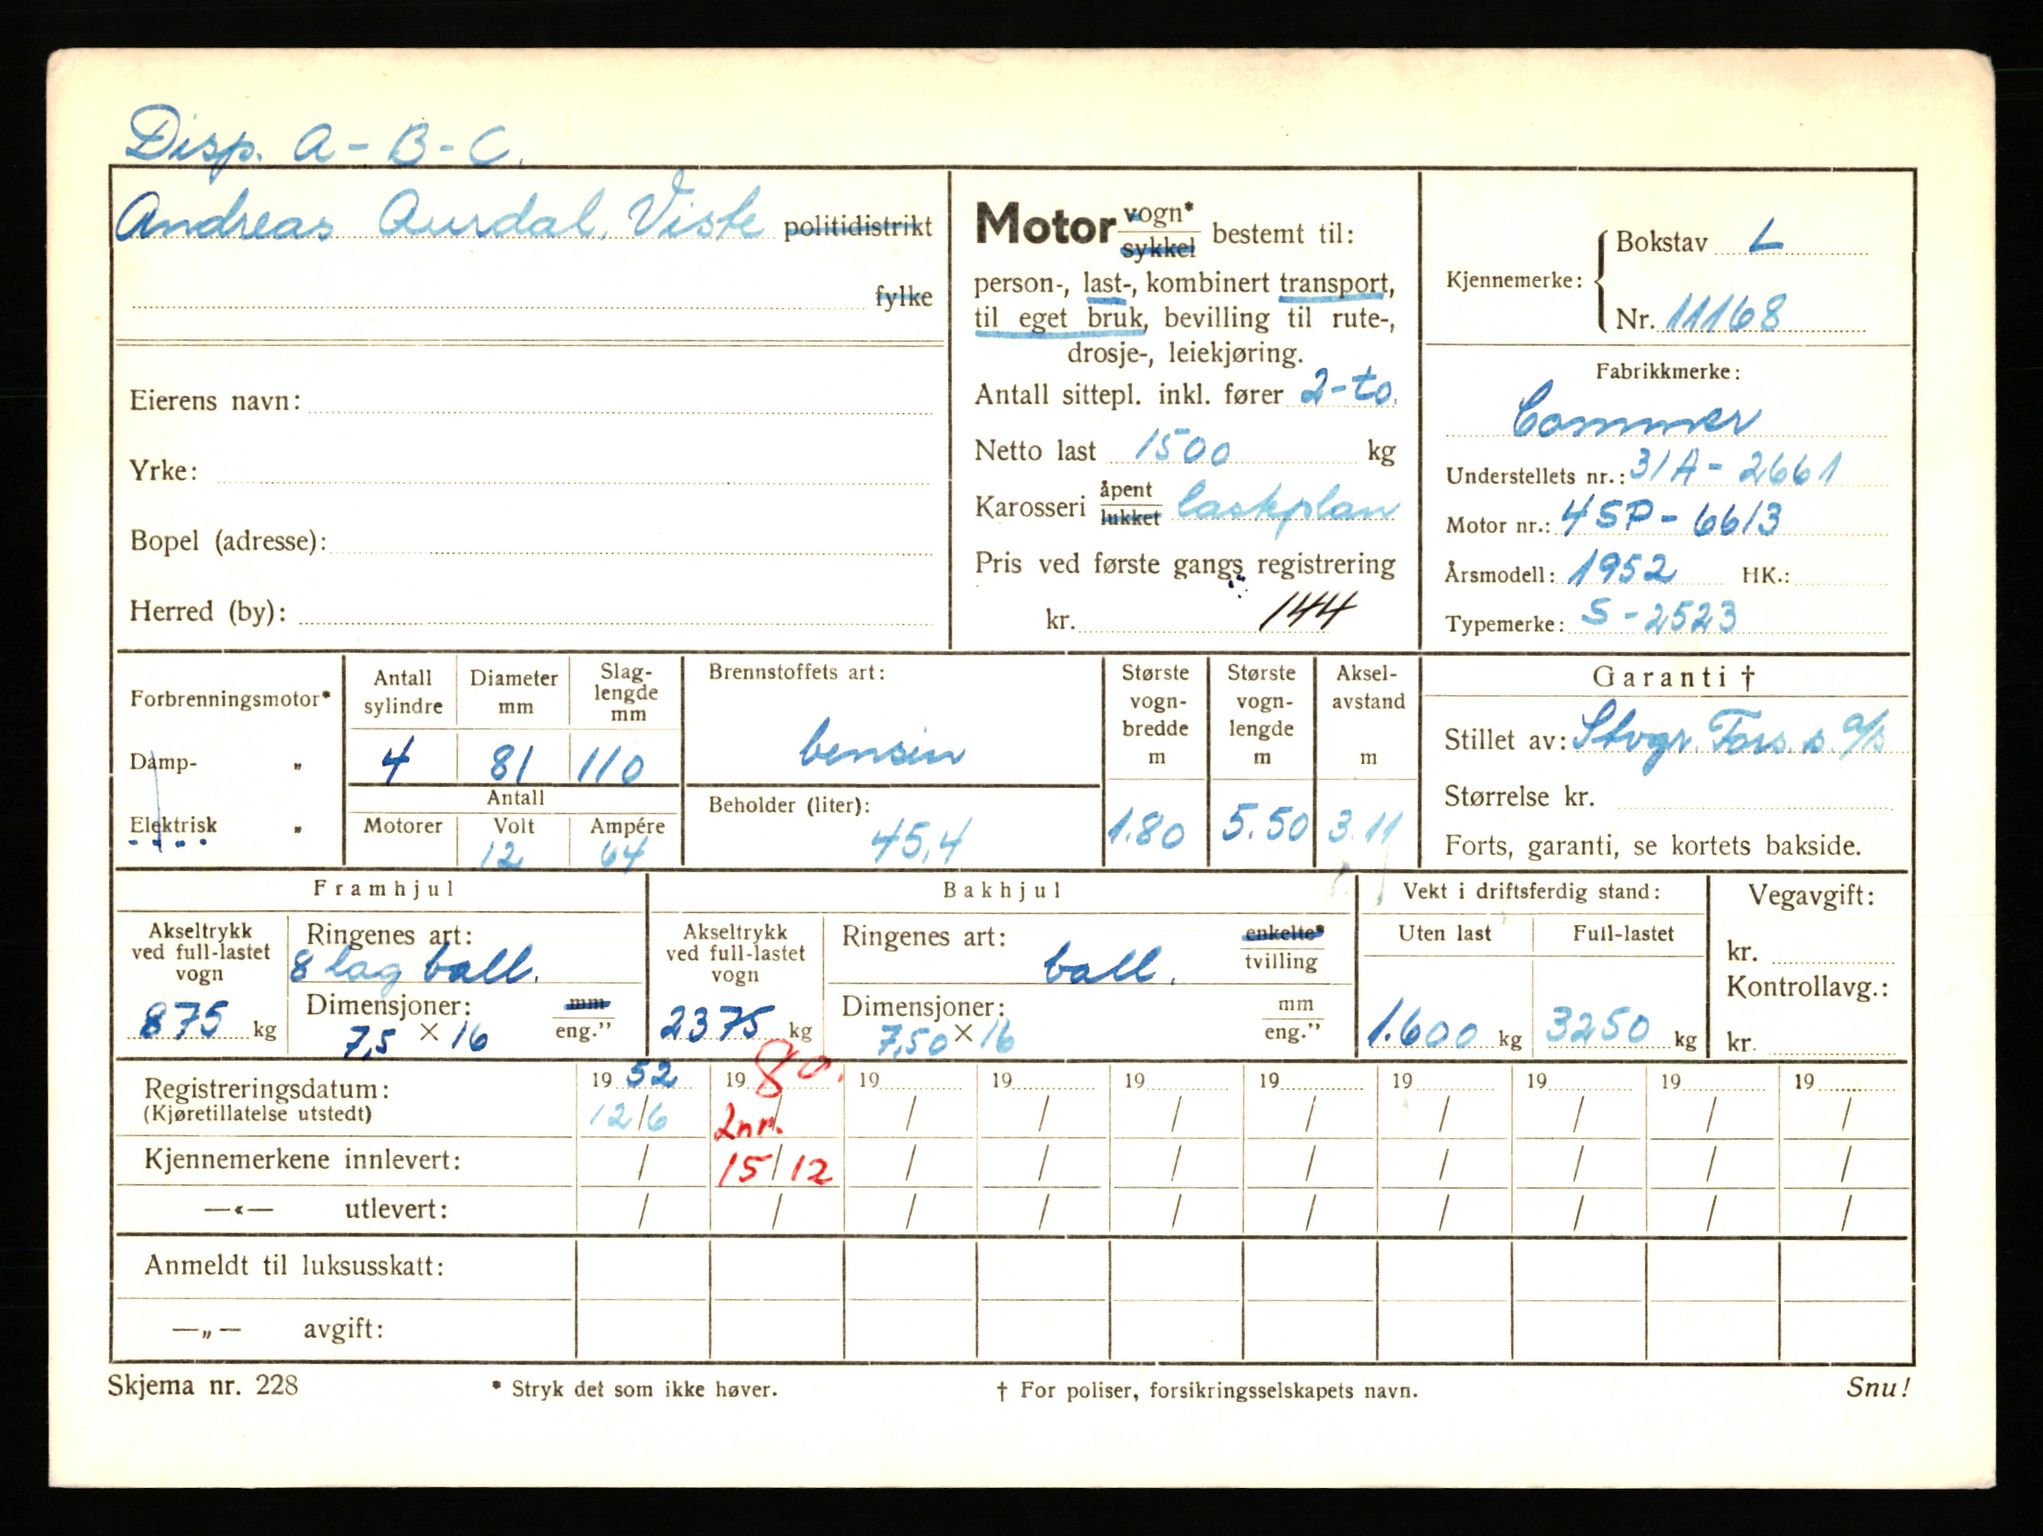 Disp. A - B - C.
Andreas Aurdal, Viste politidistrikt
fylke
Eierens navn:
Yrke:
Bopel (adresse):
Herred (by):
Motor vogn* sykkel bestemt til:
person-, last-, kombinert transport,
til eget bruk, bevilling til rute-,
drosje-, leiekjøring.
Antall sittepl. inkl. fører 2-to.
Netto last 1500 kg
Karosseri åpent lukket lasteplan
Pris ved første gangs registrering
kr. 144
Kjennemerke: Bokstav L
Nr. 11168
Fabrikkmerke:
Commer
Understellets nr.: 31A-2661
Motor nr.: 45P-6613
Årsmodell: 1952 HK.:
Typemerke: S-2523
Forbrenningsmotor*
Damp- „
Elektrisk „
Antall sylindre 4
Diameter mm 81
Slag-lengde mm 110
Antall
Motorer
Volt 12
Ampére 64
Brennstoffets art:
bensin
Beholder (liter):
45,4
Største vogn-bredde m 1.80
Største vogn-lengde m 5.50
Aksel-avstand m 3.11
Garanti †
Stillet av: Stvgr. Fors.s. a/s
Størrelse kr.
Forts, garanti, se kortets bakside.
Framhjul
Akseltrykk ved full-lastet vogn
875 kg
Ringenes art:
8 lag ball.
Dimensjoner: mm
7,5 × 16 eng.”
Bakhjul
Akseltrykk ved full-lastet vogn
2375 kg
Ringenes art: enkelte*
ball. tvilling
Dimensjoner: mm
7,50 × 16 eng.”
Vekt i driftsferdig stand:
Uten last Full-lastet
1.600 kg 3250 kg
Vegavgift:
kr.
Kontrollavg.:
kr.
Registreringsdatum: 19 52 19 19 19 19 19 19 19 19 19
(Kjøretillatelse utstedt) 12/6 / / / / / / / / /
2nr.
Kjennemerkene innlevert: / 15/12 / / / / / / / /
—«— utlevert: / / / / / / / / / /
Anmeldt til luksusskatt:
—„— avgift:
Skjema nr. 228 * Stryk det som ikke høver. † For poliser, forsikringsselskapets navn. Snu!